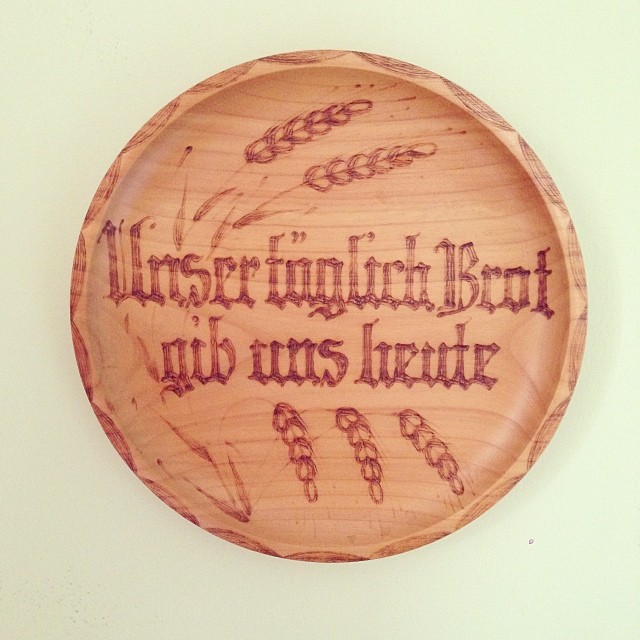 Unser täglich Brot
gib uns heute